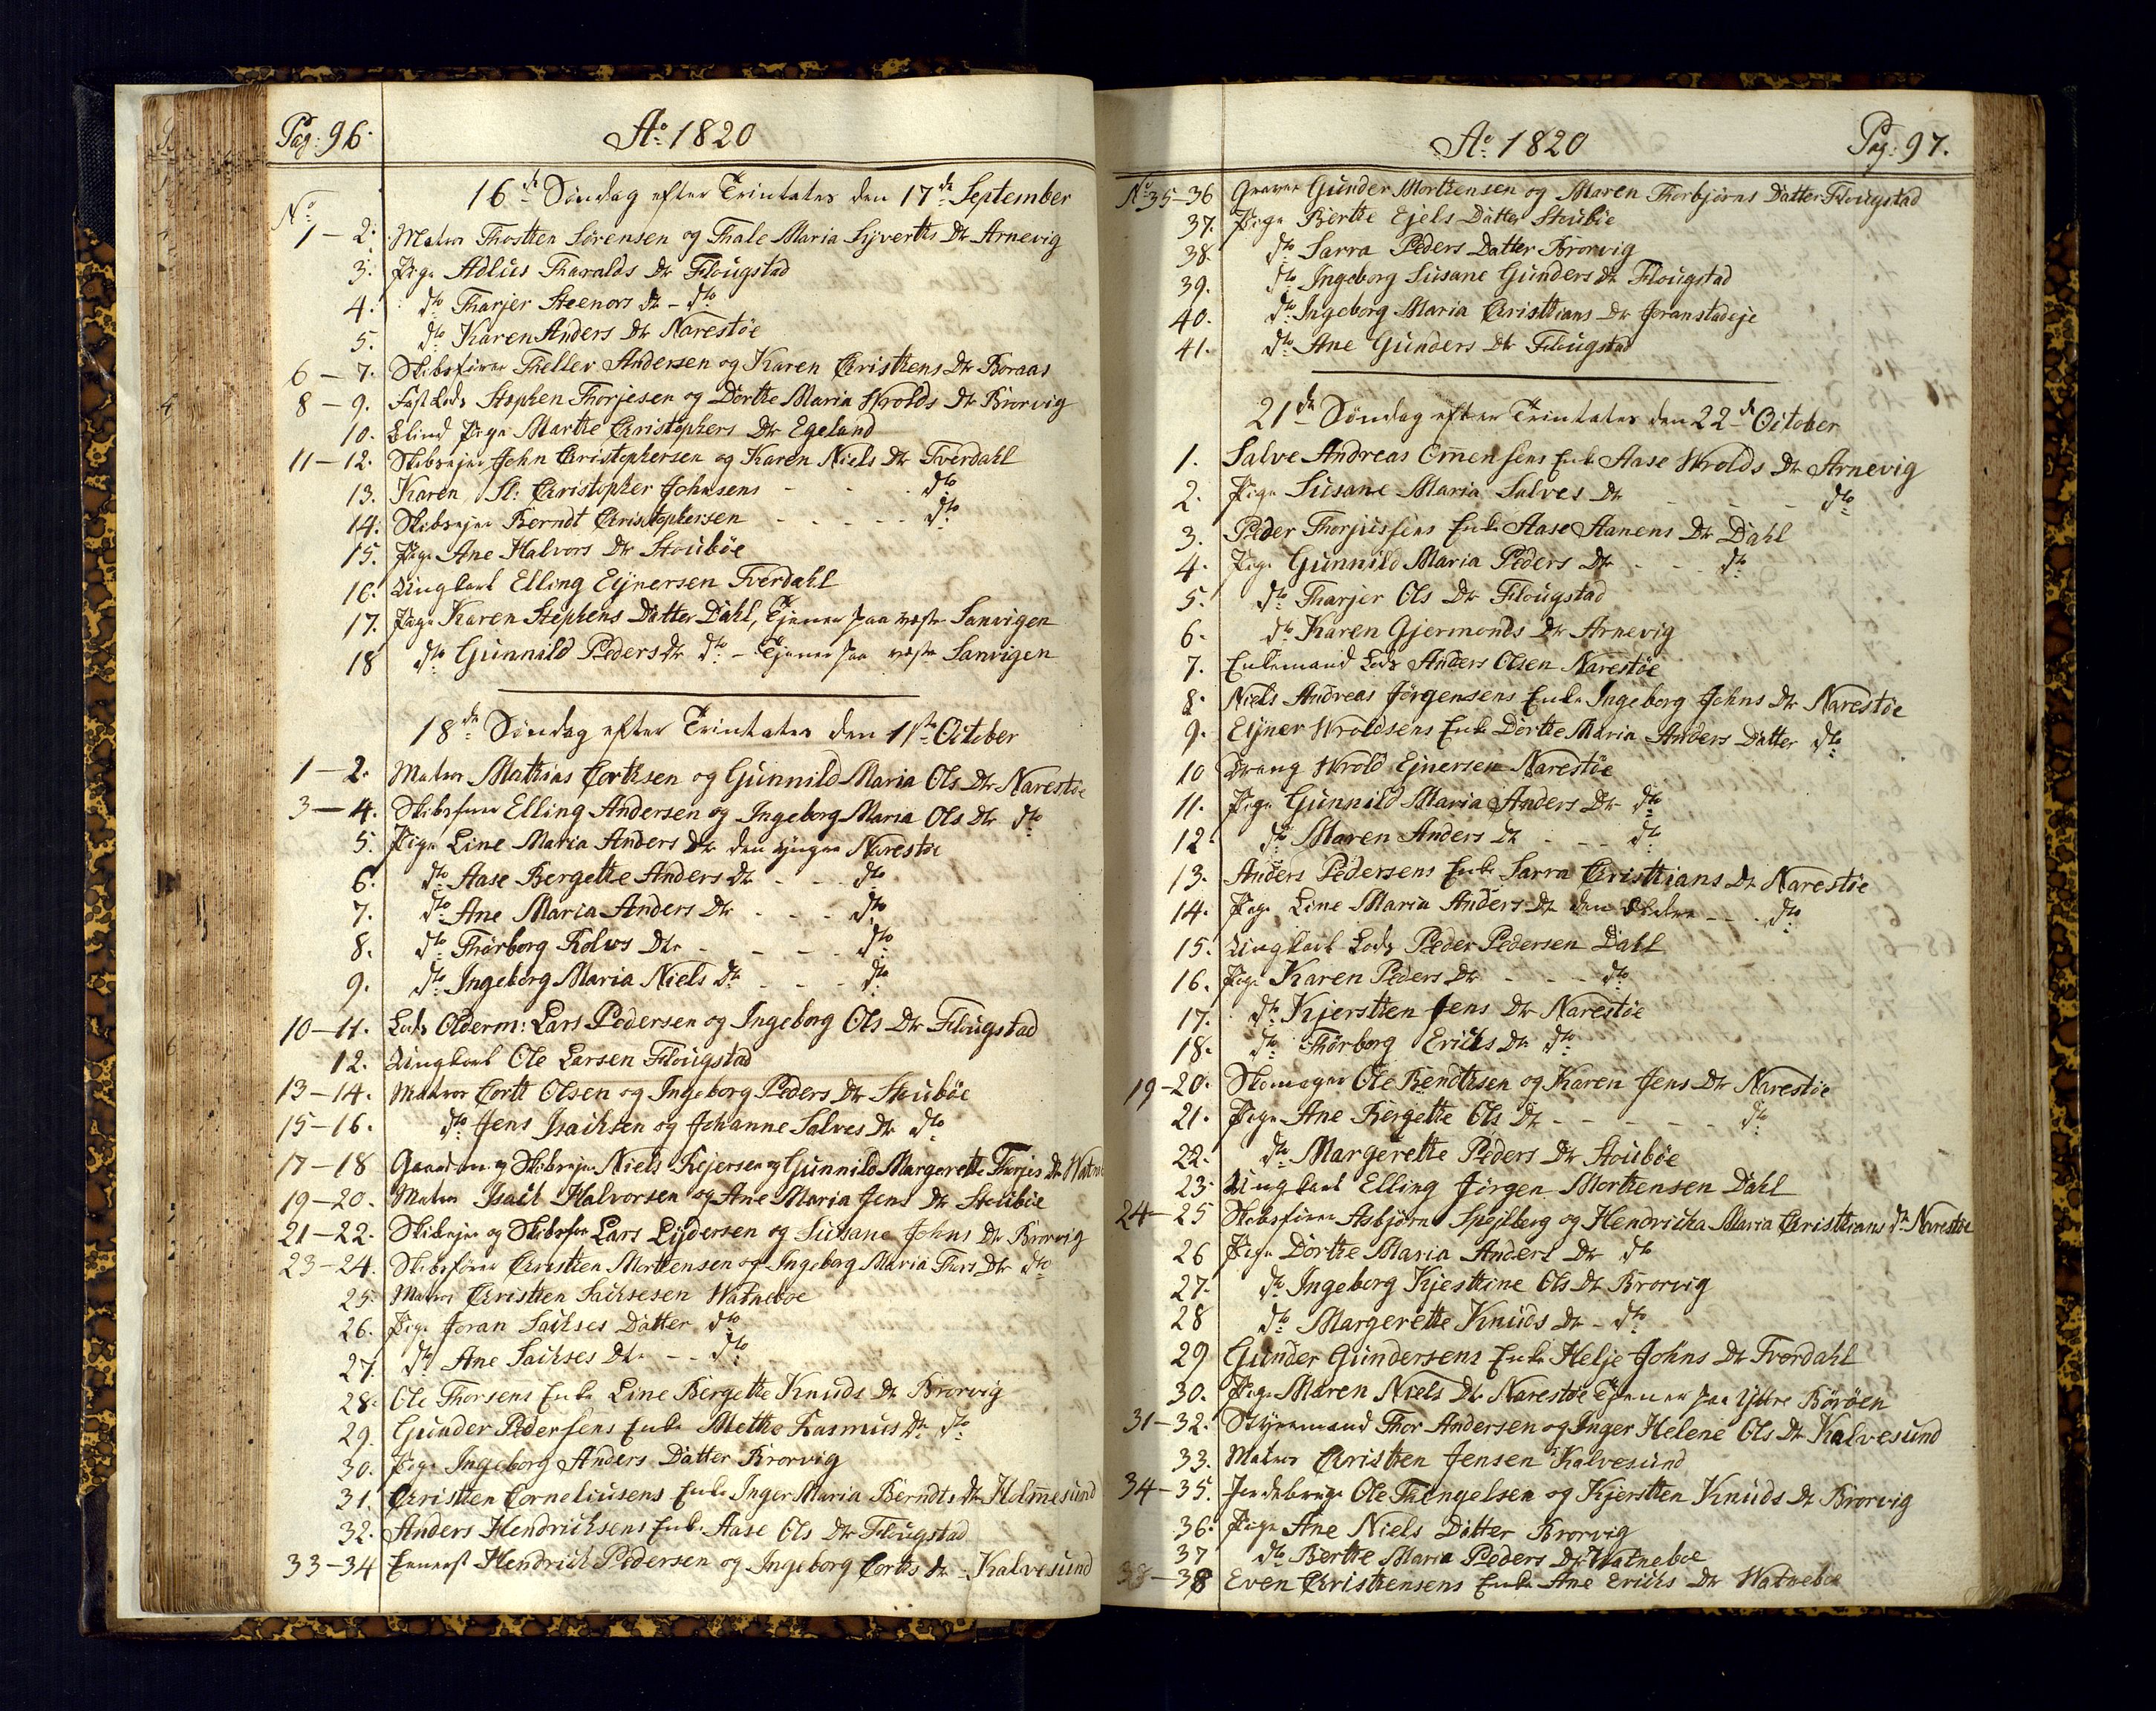 Pag: 96.
Ao 1820
16de Søndag efter Trinitates den 17de September
No
1 – 2. Matros Thosten Sørensen og Thale Maria Syverts Dtr Arnevig
3. Pige Adlus Tharalds Dtr Flougstad
4. dto Tharjer Steenors Dtr – dto
5. dto Karen Anders Dtr Narestøe
6 – 7. Skibsfører Thellev Andersen og Karen Christens Dtr Boraas
8 – 9. Fast Lods Stephen Thorjesen og Dorthe Maria Wrolds Dtr Brørvig
10. Blind Pige Marthe Christophers Dtr Egeland
11 – 12. Skibsejer John Christophersen og Karen Niels Dtr Tverdahl
13. Karen Sl: Christopher Johnsens - - - dto
14. Skibsejer Berndt Christophersen - - - - - dto
15. Pige Ane Halvors Dtr Stoubøe
16. Ungkarl Elling Eynersen Tverdahl
17. Pige Karen Stephens Datter Dahl, Tjener paa vestre Sanvigen
18 dto Gunnild Peders Dtr dto – Tjener paa vestre Sanvigen
18de Søndag efter Trinitates den 1ste October
1 – 2. Matros Mathias Cortsen og Gunnild Maria Ols Dtr Narestøe
3 – 4. Skibsfører Elling Andersen og Ingeborg Maria Ols Dtr dto
5. Pige Line Maria Anders Dtr den yngre Narestøe
6. dto Aase Bergethe Anders Dtr - - - dto
7. dto Ane Maria Anders Dtr - - - dto
8. dto Thorborg Rolvs Dtr - - - - dto
9. dto Ingeborg Maria Niels Dtr - - - dto
10 – 11. Lods Olderm: Lars Pedersen og Ingeborg Ols Dtr Flougstad
12. Ungkarl Ole Larsen Flougstad
13 – 14. Matros Cortt Olsen og Ingeborg Peders Dtr Stoubøe
15 – 16. dto Jens Isachsen og Johanne Salves Dtr dto
17 – 18 Gaardm. og Skibsejer Niels Rejersen og Gunnild Margrethe Thorjes Dtr Watne
19 – 20. Matros Isach Halvorsen og Ane Maria Jens Dtr Stoubøe
21 – 22. Skibsejer og Skibsfør Lars Lydersen og Susane Johns Dtr Brørvig
23 – 24. Skibsfører Christen Mortensen og Ingeborg Maria Thors Dtr dto
25. Matros Christen Sachsesen Watneboe
26. Pige Joran Sachses Datter dto
27. dto Ane Sachses Dtr - - dto
28. Ole Thorsens Enke Line Bergethe Knuds Dtr Brørvig
29. Gunder Pedersens Enke Methe Rasmus Dtr dto
30. Pige Ingeborg Anders Datter Brørvig
31. Christen Corneliusens Enke Inger Maria Berndts Dtr Holmesund
32. Anders Hendrichsens Enke Aase Ols Dtr Flougstad
33 – 34 Hendrich Pedersen og Ingeborg Corts Dtr – Kalvesund
Ao 1820
Pag: 97.
No 35 – 36 Gunder Mortensen og Maren Thorbjørns Datter Flougstad
37. Pige Berthe Ejels Datter Stoubøe
38. dto Sarra Peders Datter Brørvig
39. dto Ingeborg Susane Gunders Dtr Flougstad
40. dto Ingeborg Maria Christians Dtr Joranstadeje
41. dto Ane Gunders Dtr Flougstad
21de Søndag efter Trinitates den 22de October
1. Salve Andreas Omensens Enke Aase Wrolds Dtr Arnevig
2. Pige Susane Maria Salves Dtr - - - - dto
3. Peder Thorjussens Enke Aase Aanens Dtr Dahl
4. Pige Gunnild Maria Peders Dtr - - - dto
5. dto Tharjer Ols Dtr Flougstad
6. dto Karen Gjermonds Dtr Arnevig
7. Enkemand Lods Anders Olsen Narestøe
8. Niels Andreas Jørgensens Enke Ingeborg Johns Dtr Narestøe
9. Eyner Wroldsens Enke Dorthe Maria Anders Datter dto
10 Dreng Wrold Ejnersen Narestøe
11. Pige Gunnild Maria Anders Dtr dto
12. dto Maren Anders Dtr - - - dto
13. Anders Pedersens Enke Sarra Christians Dtr Narestøe
14. Pige Line Maria Anders Dtr den ældre - - dto
15. Ungkarl Lods Peder Pedersen Dahl
16. Pige Karen Peders Dtr - - - dto
17. dto Kjersten Jens Dtr Narestøe
18. dto Thorborg Erichs Dtr dto
19 – 20. Skomager Ole Bendtsen og Karen Jens Dtr Narestøe
21. Pige Ane Bergethe Ols Dtr - - - - - - dto
22. dto Margerethe Peders Dtr Stoubøe
23. Ungkarl Elling Jørgen Mortensen Dahl
24 – 25 Skibsfører Asbjørn Spejlberg og Hendricka Maria Christians Dtr Narestøe
26 Pige Dorthe Maria Anders Dtr dto
27. dto Ingeborg Kjestine Ols Dtr Brørvig
28 dto Margerethe Knuds Dtr – dto
29 Gunder Gundersens Enke Helje Johns Dtr Tverdahl
30. Pige Maren Niels Dtr Narestøe Tjener paa Ytre Børøen
31 – 32. Styremand Thor Andersen og Inger Helene Ols Dtr Kalvesund
33. Matros Christen Jensen Kalvesund
34 – 35. Jordebruger Ole Thengelsen og Kjersten Knuds Dtr Brørvig
36. Pige Ane Niels Datter Brørvig
37 dto Berthe Maria Peders Dtr Watneboe
38 Even Christensens Enke Ane Erichs Dtr Watneboe